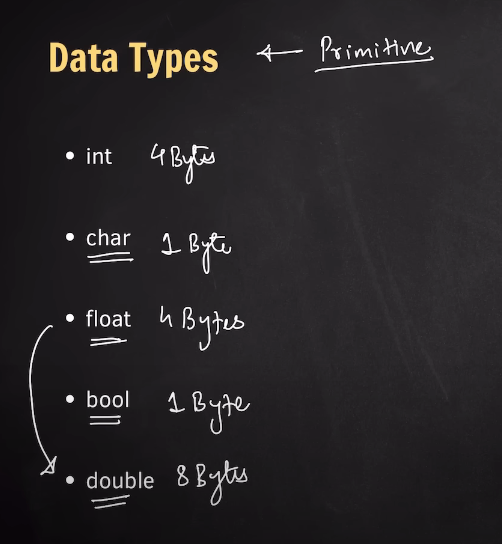 Data Types ← Primitive
• int 4 Bytes
• char 1 Byte
• float 4 Bytes
• bool 1 Byte
• double 8 Bytes